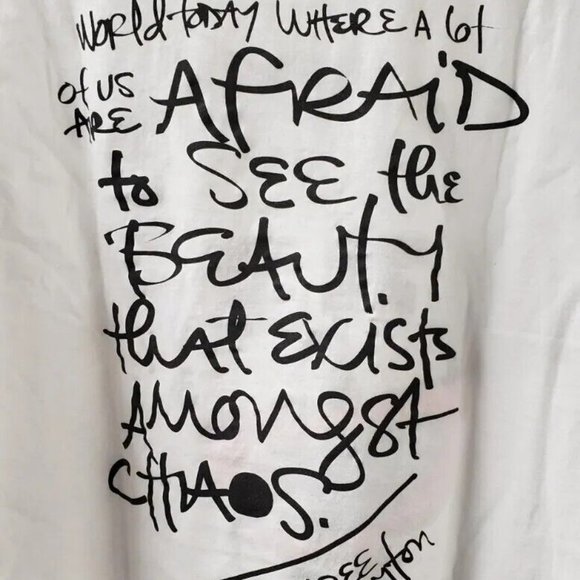 World today WHERE A lot
of US
ARE AFRAiD
to SEE the
BEAUTY
that Exists
AMongst
CHAOS.